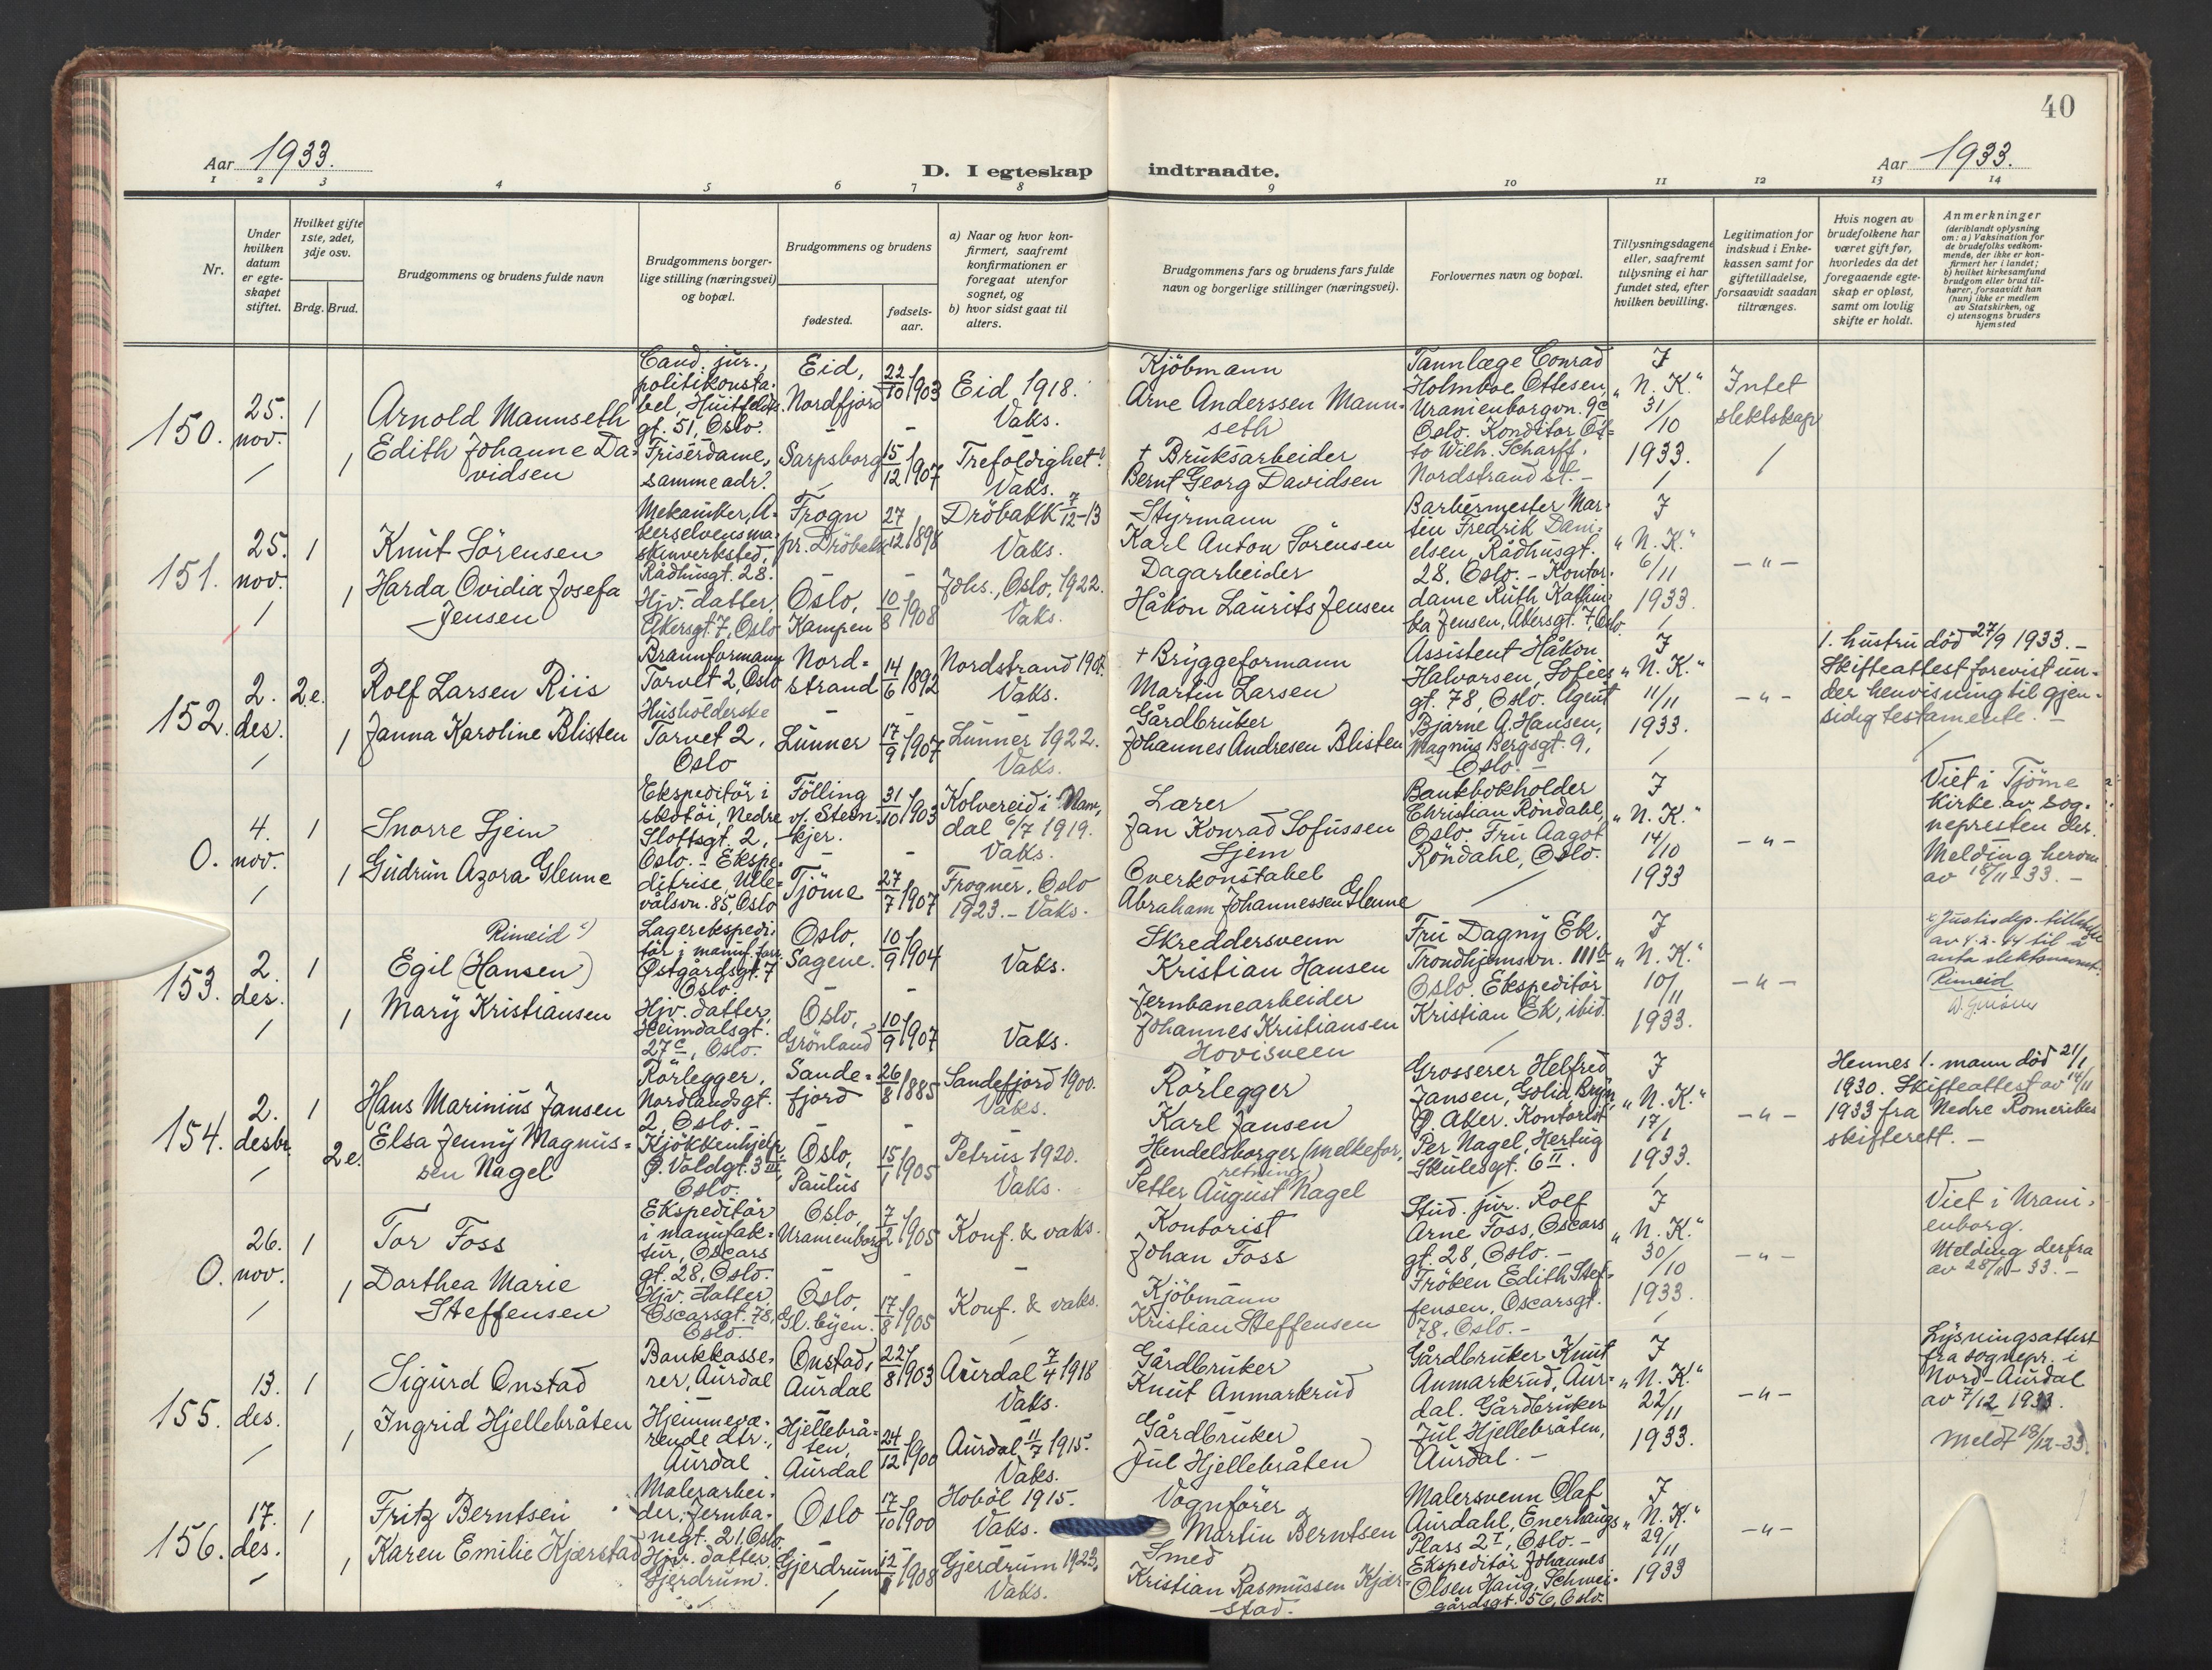 40
Aar 1933.
D. I egteskap indtraadte.
Aar 1933.
1 2 3 4 5 6 7 8 9 10 11 12 13 14
Nr.
Under hvilken datum er egteskapet stiftet.
Hvilket gifte 1ste, 2det, 3dje osv.
Brdg. Brud.
Brudgommens og brudens fulde navn
Brudgommens borgerlige stilling (næringsvei) og bopæl.
Brudgommens og brudens
fødested.
fødselsaar.
a) Naar og hvor konfirmert, saafremt konfirmationen er foregaat utenfor sognet, og
b) hvor sidst gaat til alters.
Brudgommens fars og brudens fars fulde navn og borgerlige stillinger (næringsvei).
Forlovernes navn og bopæl.
Tillysningsdagene eller, saafremt tillysning ei har fundet sted, efter hvilken bevilling.
Legitimation for indskud i Enkekassen samt for giftetilladelse, forsaavidt saadan tiltrænges.
Hvis nogen av brudefolkene har været gift før, hvorledes da det foregaaende egteskap er opløst, samt om lovlig skifte er holdt.
Anmerkninger (deriblandt oplysning om: a) Vaksination for de brudefolks vedkommende, der ikke er konfirmert her i landet; b) hvilket kirkesamfund brudgom eller brud tilhører, forsaavidt han (hun) ikke er medlem av Statskirken, og c) utensogns bruders hjemsted
150. 25. nov. 1
Arnold Mannseth
Cand. jur., politikonstabel, Huitfeldts gt. 51, Oslo.
Eid, Nordfjord
22/10 1903
Eid 1918. Vaks.
Kjöbmann
Arne Anderssen Mannseth
Tannlæge Conrad Holmboe Ottesen, Uranienborgvn. 9c Oslo. Konditor Otto Wilh. Scharff, Nordstrand st. -
I „N. K." 31/10 1933.
Intet slektskap
1 Edith Johanne Davidsen
Frisérdame, samme adr.
Sarpsborg
15/12 1907
Trefoldighet? Vaks.
† Bruksarbeider
Bernt Georg Davidsen
151. 25. nov. 1
Knut Sörensen
Mekaniker, Akerselvens maskinverksted, Rådhusgt. 28.
Frogn pr. Dröbak
27/12 1898
Dröbakk 7/12-13 Vaks.
Styrmann
Karl Anton Sörensen
Barbermester Marten Fredrik Danielsen, Rådhusgt. 28, Oslo. - Kontordame Ruth Kathinka Jensen, Akersgt. 7, Oslo.
I „N. K." 6/11 1933.
- " -
1 Harda Ovidia Josefa Jensen
Hjv. datter, Akersgt. 7, Oslo
Oslo, Kampen
10/8 1908
Johs., Oslo, 1922. Vaks.
Dagarbeider
Håkon Laurits Jensen
152. 2. des. 2e.
Rolf Larsen Riis
Brannformann Torvet 2, Oslo
Nordstrand
14/6 1892
Nordstrand 1907. Vaks.
† Bryggeformann
Martin Larsen
Assistent Håkon Halvorsen, Sofies gt. 78, Oslo. Agent Bjarne A. Hansen, Magnus Bergsgt. 9, Oslo. -
I „N. K." 11/11 1933.
- " -
1. hustru död 27/9 1933. - Skifteattest forevist under henvisning til gjensidig testamente. -
1 Janna Karoline Blisten
Husholderske Torvet 2, Oslo
Lunner
17/9 1907
Lunner 1922. Vaks.
Gårdbruker
Johannes Andresen Blisten
0. 4. nov. 1
Snorre Sjem
Ekspeditör i skotöi, Nedre Slottsgt. 2, Oslo. -
Fölling v. Steinkjer.
31/10 1903
Kolvereid i Namdal 6/7 1919. Vaks.
Lærer
Jan Konrad Sofussen Sjem
Bankbokholder Christian Röndahl, Oslo. Fru Aagot Röndahl, Oslo.
I „N. K." 14/10 1933
- " -
Viet i Tjöme kirke av sognepresten der. Melding herom av 18/11-33. -
1 Gudrun Azora Glenne
Ekspeditrise, Ullevålsvn. 85, Oslo
Tjöme
27/7 1907
Frogner, Oslo 1923. - Vaks.
Overkonstabel
Abraham Johannessen Glenne
153. 2. des. 1
Rimeid
Egil (Hansen)
Lagerekspeditör i manuf. forr. Östgårdsgt. 7 Oslo.
Oslo, Sagene.
10/9 1904
Vaks.
Skreddersvenn
Kristian Hansen
Fru Dagny Ek, Trondhjemsvn. 111b Oslo. Ekspeditör Kristian Ek, ibid.
I „N. K." 10/11 1933.
- " -
Justisdep. tillatelse av 4.2.44 til å anta slektsnavnet Rimeid
1 Mary Kristiansen
Hjv. datter, Heimdalsgt. 27c, Oslo.
Oslo, Grönland
10/9 1907
Vaks.
Jernbanearbeider
Johannes Kristiansen Hovisveen
154. 2. desbr. 1
Hans Marinius Jansen
Rörlegger, Nordlandsgt. 2, Oslo. -
Sandefjord
26/8 1885
Sandefjord 1900. Vaks.
Rörlegger
Karl Jansen
Grosserer Helfred Jansen, Golia, Bryn Ö. Aker. Kontorist Per Nagel, Hertug Skulesgt. 6 II.
I „N. K." 17/1 1933.
- " -
Hennes 1. mann död 21/1 1930. Skifteattest av 14/11 1933 fra Nedre Romerikes skifterett. -
2e. Elsa Jenny Magnussen Nagel
Kjökkenhjelp, Ö. Voldgt. 3 III, Oslo.
Oslo, Paulus
15/1 1905
Petrus 1920. Vaks.
Handelsborger (melkeforretning)
Petter August Nagel
0. 26. nov. 1
Tor Foss
Ekspeditör i manufaktur, Oscars gt. 28, Oslo.
Oslo, Uranienborg
7/2 1905
Konf. & vaks.
Kontorist
Johan Foss
Stud. jur. Rolf Arne Foss, Oscars gt. 28, Oslo. - Fröken Edith Steffensen, Oscarsgt. 78, Oslo. -
I „N. K." 30/10 1933.
- " -
Viet i Uranienborg. Melding derfra av 28/11-33. -
1 Dorthea Marie Steffensen
Hjv. datter, Oscarsgt. 78, Oslo.
Oslo, Gl. byen.
17/8 1905
Konf. & vaks.
Kjöbmann
Kristian Steffensen
155. 13. des. 1
Sigurd Onstad
Bankkasserer, Aurdal
Onstad, Aurdal
22/8 1903
Aurdal 7/4 1918 Vaks.
Gårdbruker
Knut Anmarkrud
Gårdbruker Knut Anmarkrud, Aurdal. Gårdbruker Jul Hjellebråten, Aurdal. -
I „N. K." 22/11 1933.
- " -
Lysningsattest fra sognepr. i Nord-Aurdal av 7/12 1933.
Meldt 18/12-33.
1 Ingrid Hjellebråten
Hjemmeværende dtr., Aurdal
Hjellebråten, Aurdal
24/12 1900
Aurdal 11/7 1915. Vaks.
Gårdbruker
Jul Hjellebråten
156. 17. des. 1
Fritz Berntsen
Malerarbeider, Jernbanegt. 21, Oslo.
Oslo
17/10 1900
Hoböl 1915. Vaks.
Vognförer
Martin Berntsen
Malersvenn Olaf Aurdahl, Enerhaugs Plass 2 I, Oslo. - Ekspeditör Johannes Olsen Haug, Schweigårdsgt. 56, Oslo.
I „N. K." 29/11 1933
- " -
1 Karen Emilie Kjærstad
Hjv. datter, Gjerdrum.
Gjerdrum
1908
Gjerdrum 1923. Vaks.
Smed
Kristian Rasmussen Kjærstad.